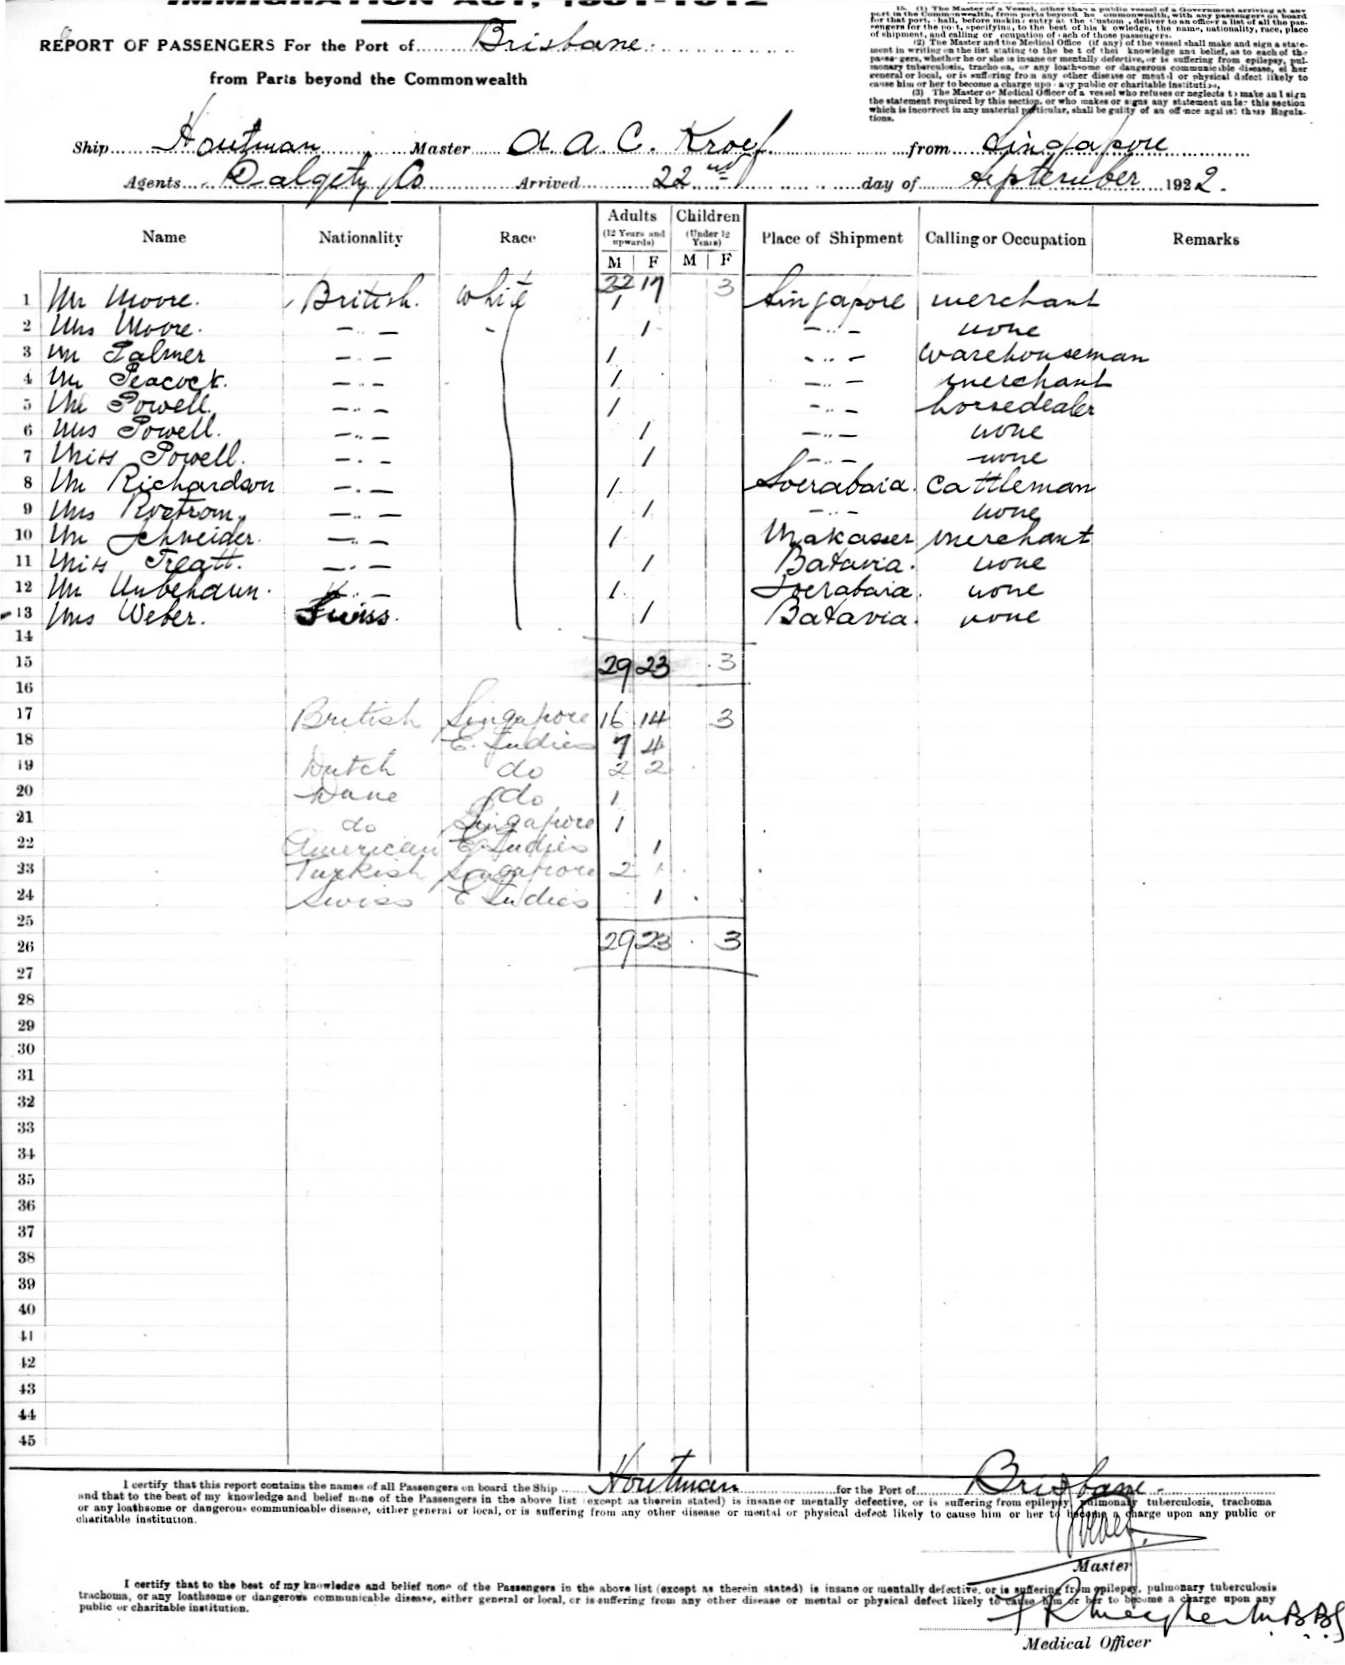 IMMIGRATION ACT, 1901-1912
REPORT OF PASSENGERS For the Port of Brisbane.
from Parts beyond the Commonwealth
15. (1) The Master of a Vessel, other than a public vessel of a Government arriving at any
port in the Commonwealth, from parts beyond the Commonwealth, with any passengers on board
for that port, shall, before making entry at the Customs, deliver to an officer a list of all the pas-
sengers for the port, specifying, to the best of his knowledge, the name, nationality, race, place
of shipment, and calling or occupation of each of those passengers.
(2) The Master and the Medical Office (if any) of the vessel shall make and sign a state-
ment in writing on the list stating to the best of their knowledge and belief, as to each of the
passengers, whether he or she is insane or mentally defective, or is suffering from epilepsy, pul-
monary tuberculosis, trachoma, or any loathsome or dangerous communicable disease, either
general or local, or is suffering from any other disease or mental or physical defect likely to
cause him or her to become a charge upon any public or charitable institution.
(3) The Master or Medical Officer of a vessel who refuses or neglects to make and sign
the statement required by this section, or who makes or signs any statement under this section
which is incorrect in any material particular, shall be guilty of an offence against these Regula-
tions.
Ship Houtman Master A. A. C. Kroef. from Singapore
Agents Dalgety Co Arrived 22nd day of September 1922.
Name Nationality Race Adults (12 Years and upwards) M F Children (Under 12 Years) M F Place of Shipment Calling or Occupation Remarks
32 17 3
1 Mr Moore. British. White 1 Singapore merchant
2 Mrs Moore. — .. — 1 — .. — none
3 Mr Palmer — .. — 1 — .. — warehouseman
4 Mr Peacock. — .. — 1 — .. — merchant
5 Mr Powell. — .. — 1 — .. — horsedealer
6 Mrs Powell. — .. — 1 — .. — none
7 Miss Powell. — .. — 1 — .. — none
8 Mr Richardson — .. — 1 Soerabaia. Cattleman
9 Mrs Rostrom. — .. — 1 — .. — none
10 Mr Schneider. — .. — 1 Makasser merchant
11 Miss Treatt. — .. — 1 Batavia. none
12 Mr Unbehaun. — .. — 1. Soerabaia. none
13 Mrs Weber. Swiss. 1 Batavia. none
14
15 29 23 3
16
17 British Singapore 16 14 3
18 E. Indies 7 4
19 Dutch do 2 2
20 Dane do 1
21 do Singapore 1
22 American E. Indies 1
23 Turkish Singapore 2 1
24 Swiss E Indies 1
25
26 29 23 3
27
28
29
30
31
32
33
34
35
36
37
38
39
40
41
42
43
44
45
I certify that this report contains the names of all Passengers on board the Ship Houtman for the Port of Brisbane.
and that to the best of my knowledge and belief none of the Passengers in the above list (except as therein stated) is insane or mentally defective, or is suffering from epilepsy, pulmonary tuberculosis, trachoma
or any loathsome or dangerous communicable disease, either general or local, or is suffering from any other disease or mental or physical defect likely to cause him or her to become a charge upon any public or
charitable institution.
Kroef.
Master
I certify that to the best of my knowledge and belief none of the Passengers in the above list (except as therein stated) is insane or mentally defective, or is suffering from epilepsy, pulmonary tuberculosis
trachoma, or any loathsome or dangerous communicable disease, either general or local, or is suffering from any other disease or mental or physical defect likely to cause him or her to become a charge upon any
public or charitable institution.
M.B.B.S
Medical Officer